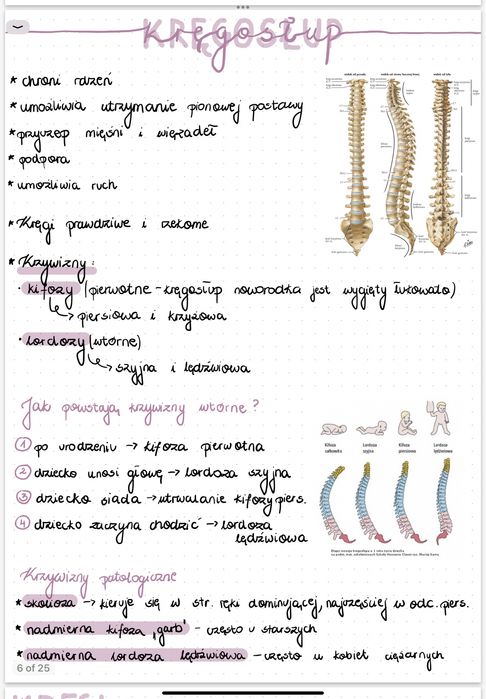 KRĘGOSŁUP
kręgosłup
* chroni rdzeń
* umożliwia utrzymanie pionowej postawy
* przyczep mięśni i więzadeł
* podpora
* umożliwia ruch
* Kręgi prawdziwe i rzekome
* Krzywizny:
· kifozy (pierwotne - kręgosłup noworodka jest wygięty łukowato)
↳ piersiowa i krzyżowa
· lordozy (wtórne)
↳ szyjna i lędźwiowa
Jak powstają krzywizny wtórne?
① po urodzeniu → kifoza pierwotna
② dziecko unosi głowę → lordoza szyjna
③ dziecko siada → utrwalanie kifozy piers.
④ dziecko zaczyna chodzić → lordoza
lędźwiowa
Kifoza całkowita
Lordoza szyjna
Kifoza piersiowa
Lordoza lędźwiowa
Krzywizny patologiczne
* skolioza → kieruje się w str. ręki dominującej, najczęściej w odc. piers.
* nadmierna kifoza „garb" - często u starszych
* nadmierna lordoza lędźwiowa - często w kobiet ciężarnych
6 of 25